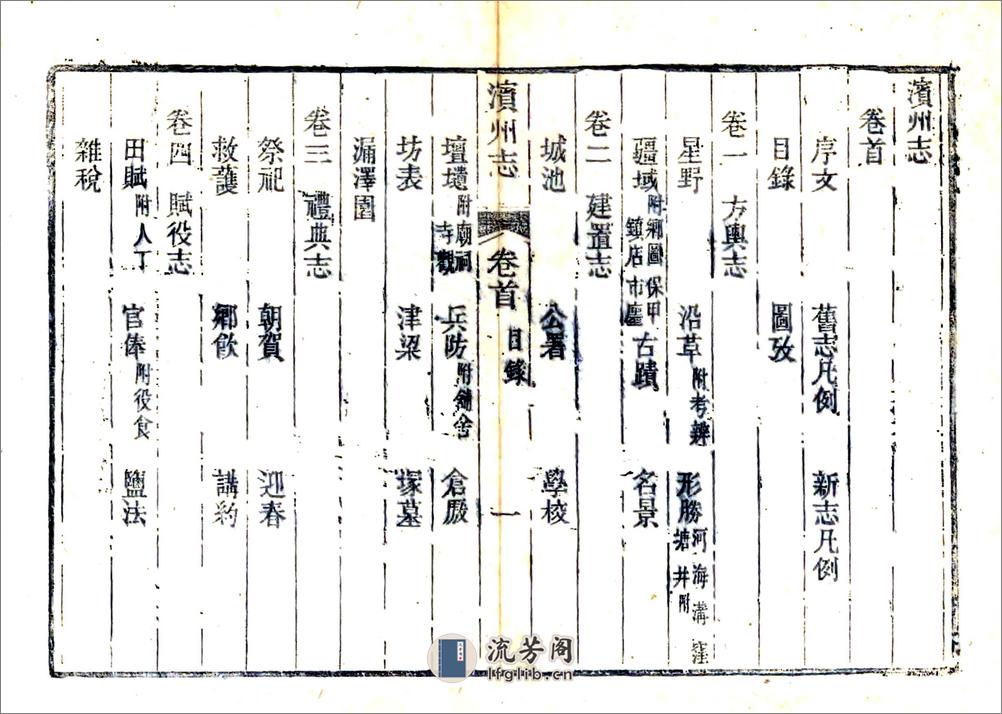 濱州志
卷首
序文 舊志凡例 新志凡例
目錄 圖攷
卷一 方輿志
星野 沿革附考辨 形勝河海溝窪塘井附
疆域附鄉圖保甲鎮店市廛 古蹟 名景
卷二 建置志
城池 公署 學校
濱州志 卷首 目錄 一
壇壝附廟祠寺觀 兵防附舖舍 倉厫
坊表 津梁 塚墓
漏澤園
卷三 禮典志
祭祀 朝賀 迎春
救護 鄉飲 講約
卷四 賦役志
田賦附人丁 官俸附役食 鹽法
雜稅
流芳阁
lfglib.cn